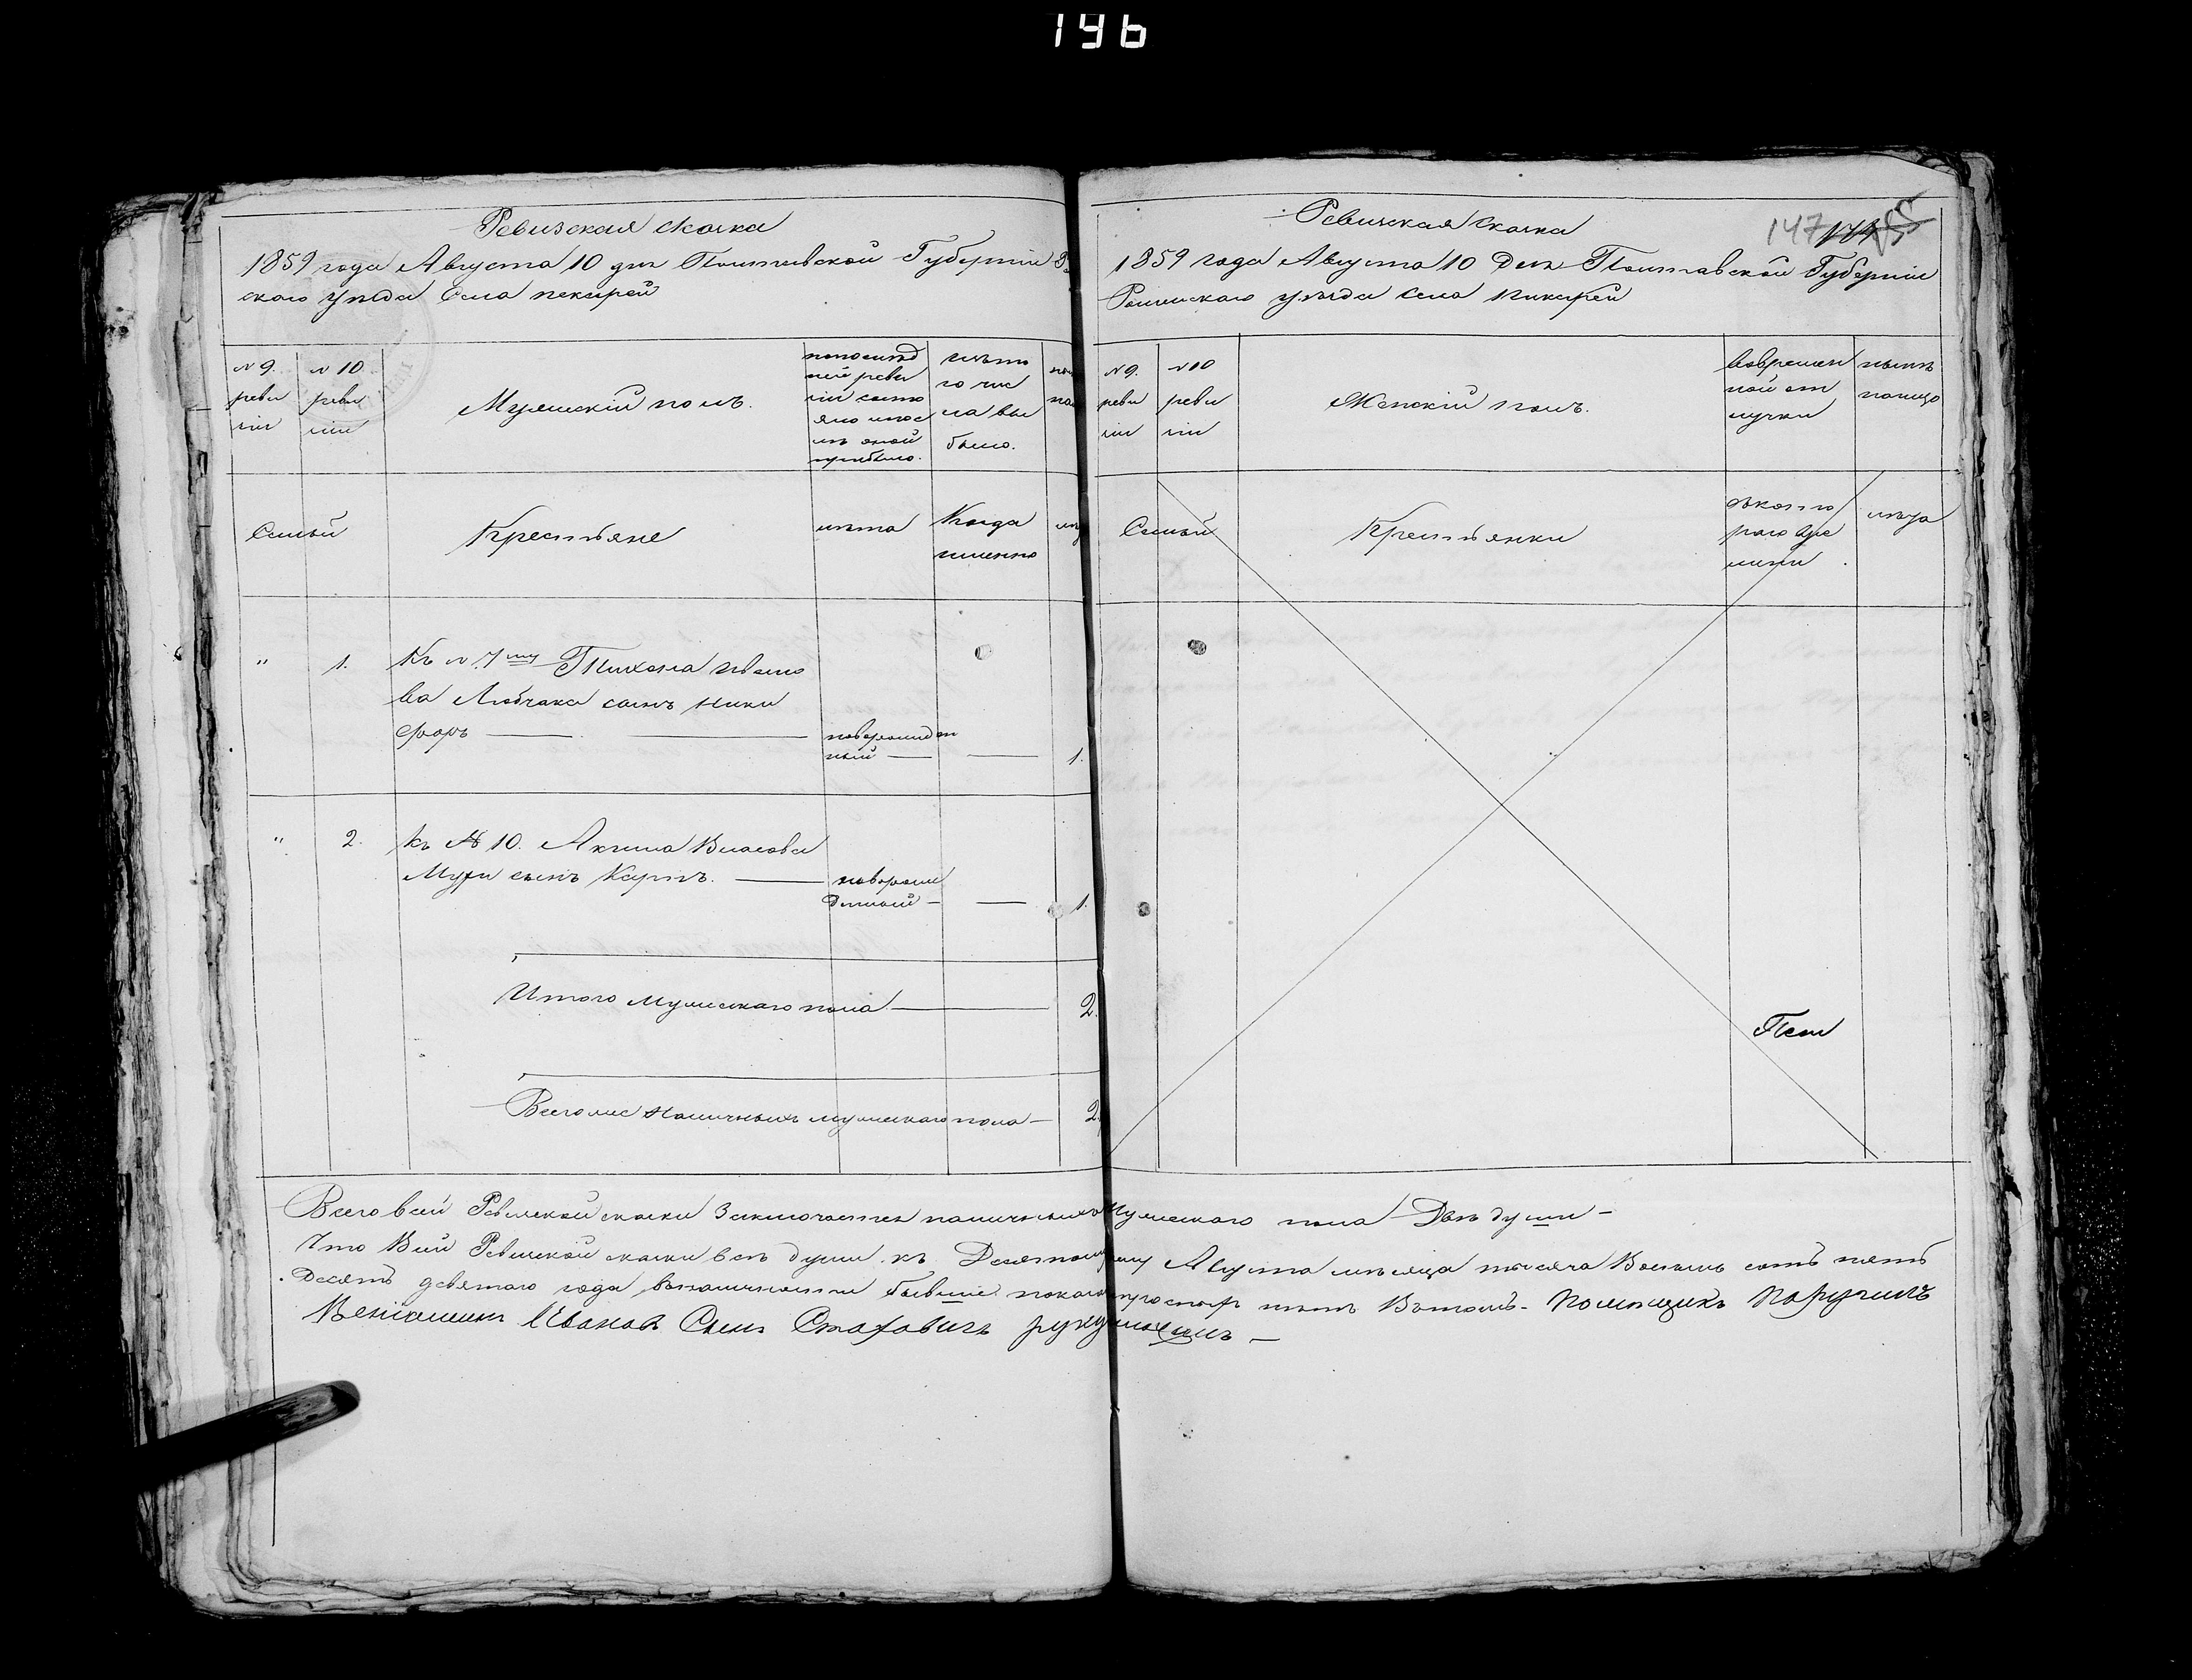 196
Ревизская сказка
1859 года Августа 10 дня Полтавской Губерніи
ского уезда Села пекарей
№ 9. ревизіи
№ 10. ревизіи
Мужескій полъ.
Изъ того числа выбыло.
Семьи
Крестьяне
лета
Когда именно
" 1. Къ № 7му Тихона Ивано
ва Любчака сынъ Ники
форъ — — новорожден
ный — — 1.
" 2. къ № 10. Акима Власова
Мухи сынъ Карпъ. — новорож
денный — — 1.
Итого мужескаго пола — 2.
Всего же Наличныхъ мужескаго пола — 2.
Ревизская Сказка
147
1859 года Августа 10 Дня Полтавской Губерніи
Роменскаго уезда Села Пикарей
№ 9. ревизіи
№ 10 ревизіи
Женскій полъ.
Во временной отлучки
ныне налицо
Семьи
Крестьянки
съ котораго времени
лета
Всего в сей Ревизской сказки Заключается наличныхъ Мужескаго пола Две души —
Что В сей Ревизской сказки все души къ Десятому Августа месяца тысяча Восемь сотъ пять
десятъ девятого года в наличности бывшие показаны прописныхъ нетъ Въ томъ. Помещикъ Поручикъ
Веніаминъ Ивановъ Сынъ Стаховичъ руку приложилъ —